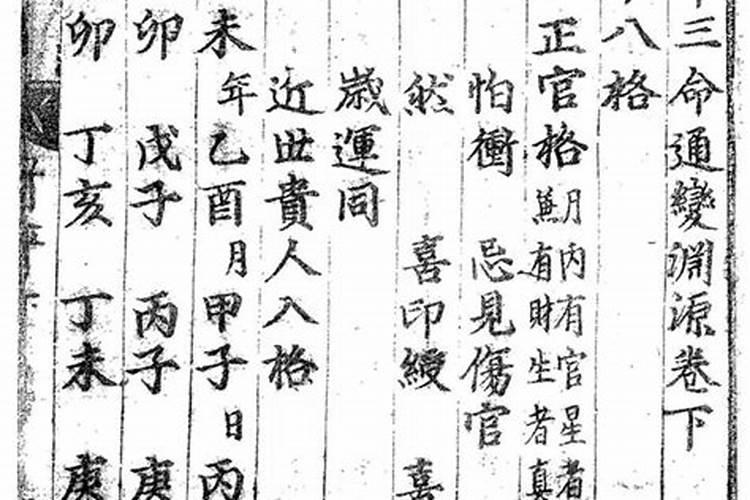 三命通變淵源卷下
八格
正官格 月內有官星者
兼有財生者真
怕衝 忌見傷官
然 喜印綬 喜
歲運同
近世貴人入格
未年 乙酉月 甲子日 丙
卯 戊子 丙子 庚
卯 丁亥 丁未 庚